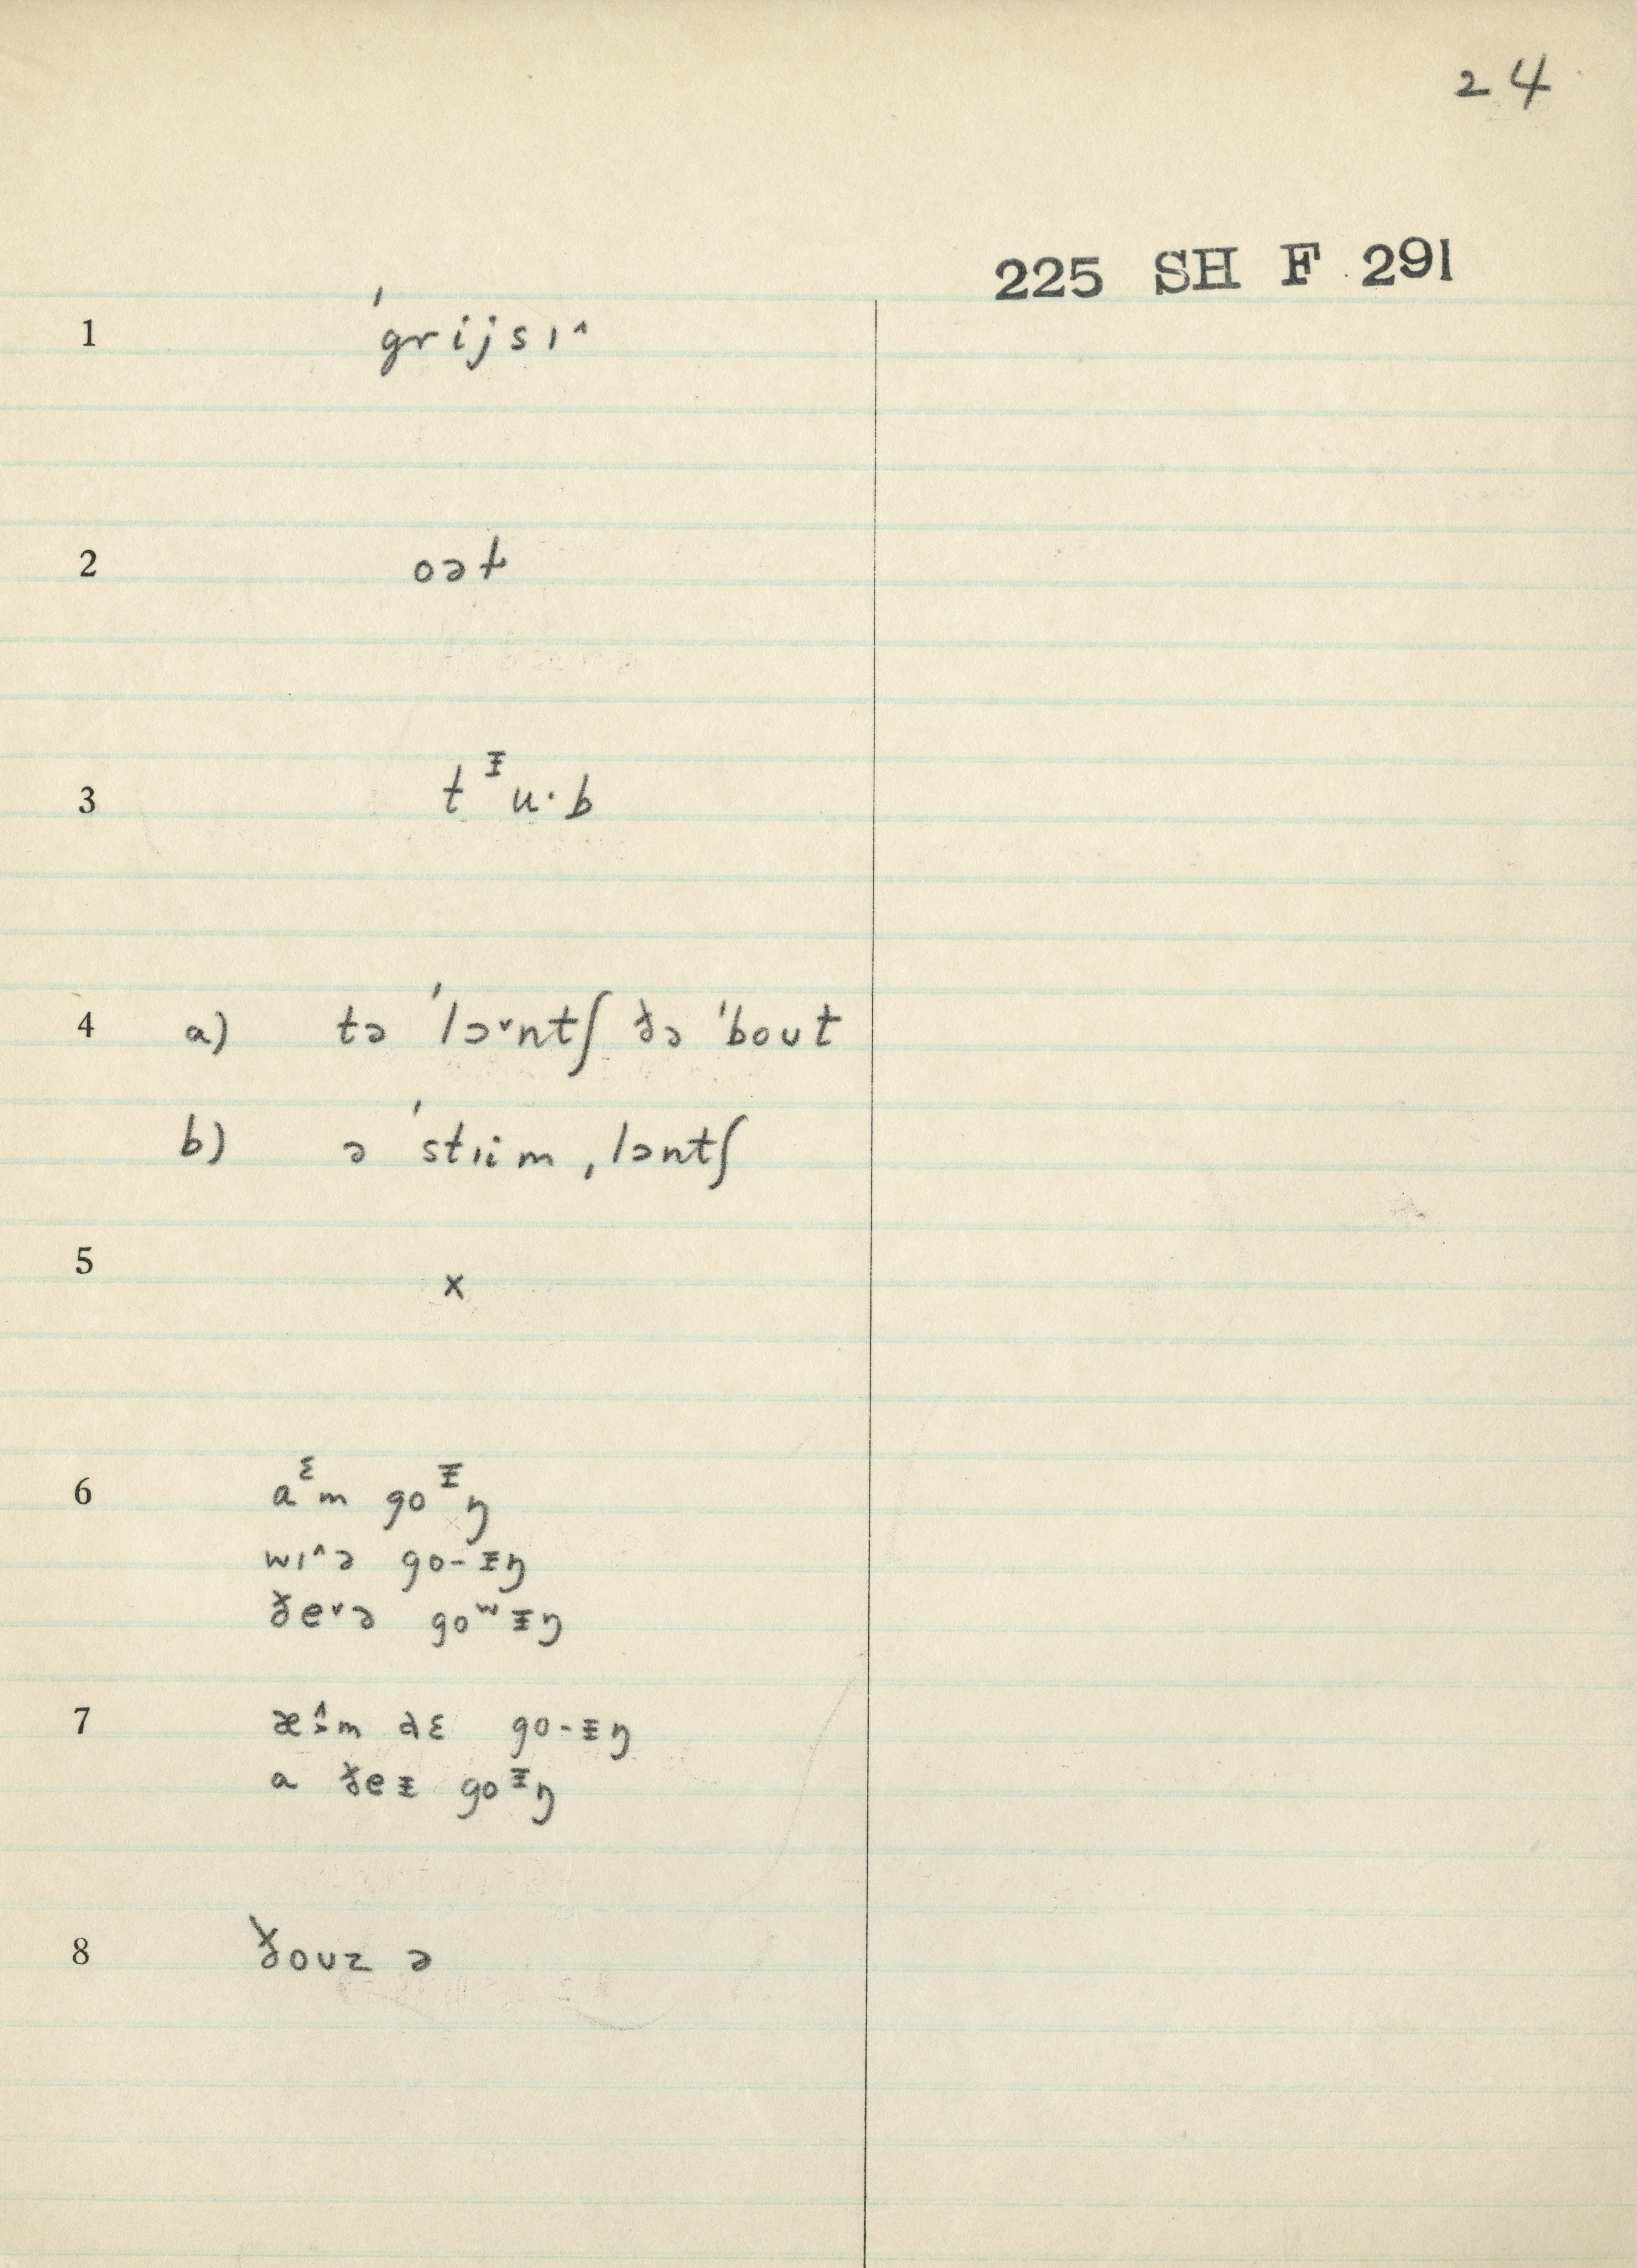 24
225 SH F 291
1 ˈgrijsɪ^
2 oəɫ
3 tᵻu·b
4 a) tə ˈlɔ˅ntʃ ðə ˈbout
b) ə ˈstɪim ˌlɔntʃ
5 x
6 aᵋm goᵻŋ
wɪ^ə go-ᵻŋ
ðe˅ə goʷᵻŋ
7 æ^əm aɛ go-ᵻŋ
a ðeᵻ goᵻŋ
8 ðouz ə